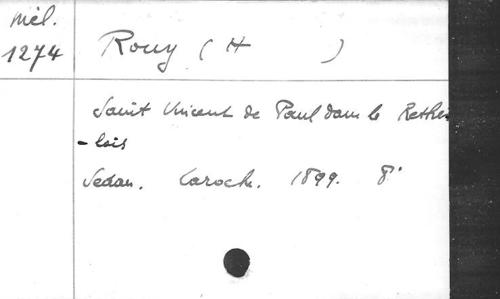 Mél.
1274
Rouy (H )
Saint Vincent de Paul dans le Rethé
- lois
Sedan. Laroche. 1899. 8°